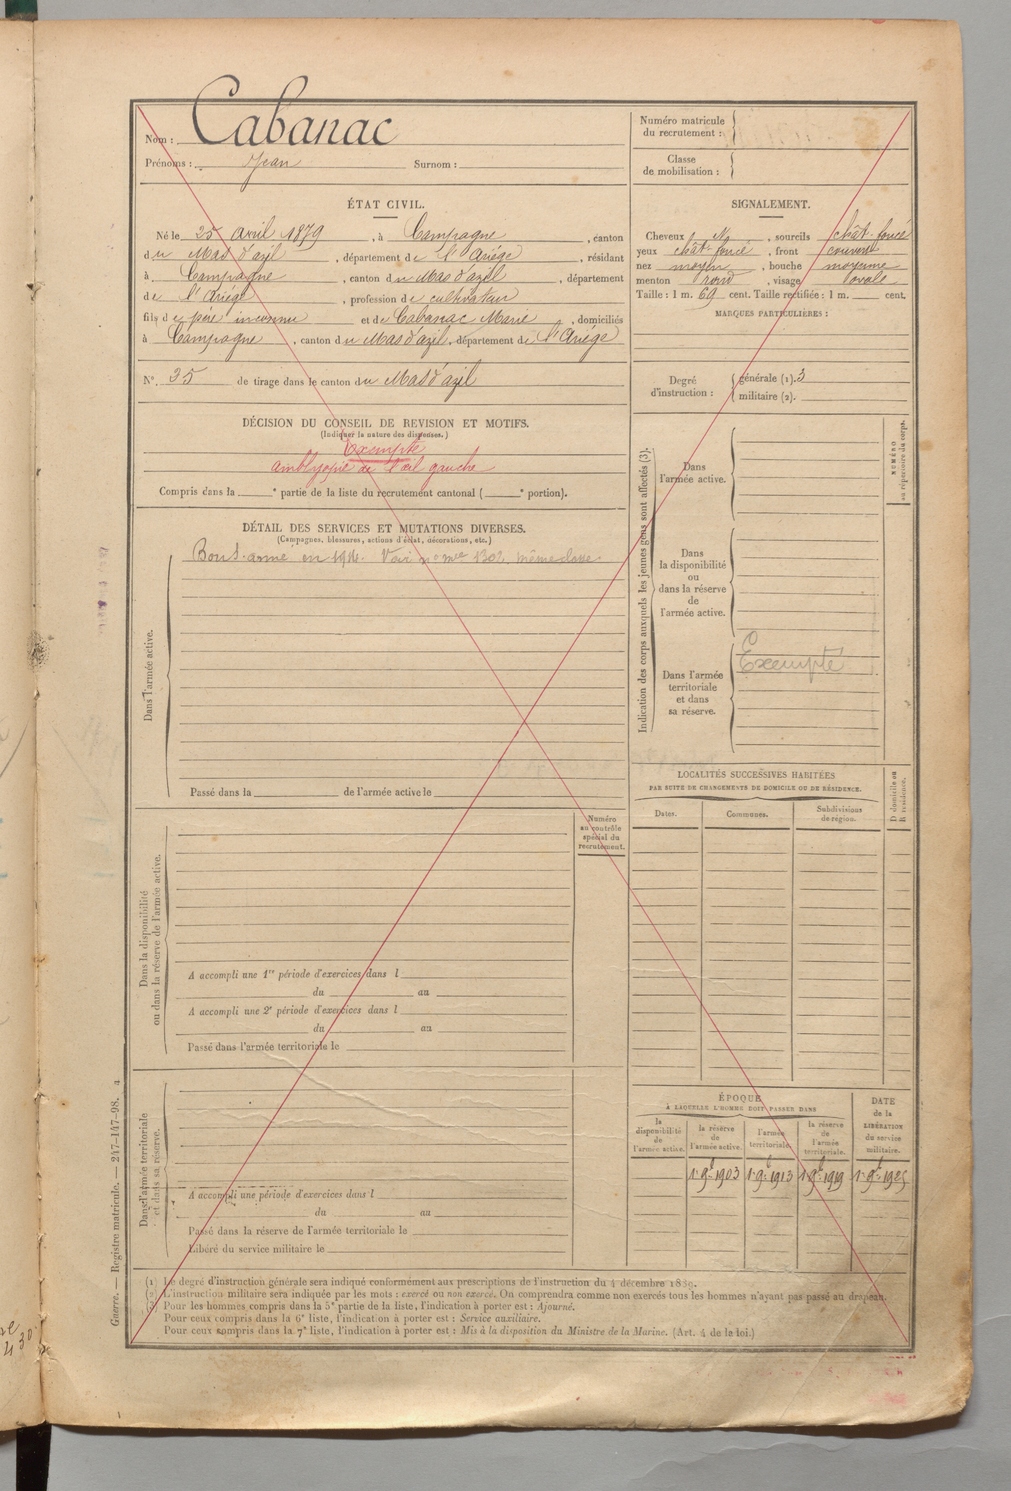 Nom : Cabanac
Prénoms : Jean Surnom :
Numéro matricule
du recrutement :
Classe
de mobilisation :
ÉTAT CIVIL.
Né le 25 avril 1879, à Campagne, canton
du Mas d'azil, département de l'Ariége, résidant
à Campagne, canton du Mas d'azil, département
de l'Ariége, profession de cultivateur
fils de père inconnu et de Cabanac Marie, domiciliés
à Campagne, canton du Mas d'azil, département de l'Ariége
N° 35 de tirage dans le canton du Mas d'azil
SIGNALEMENT.
Cheveux N, sourcils chât. foncé
yeux chât. foncé, front couvert
nez moyen, bouche moyenne
menton rond, visage ovale
Taille : 1 m. 69 cent. Taille rectifiée : 1 m. cent.
MARQUES PARTICULIÈRES :
Degré
d'instruction :
générale (1). 3
militaire (2).
DÉCISION DU CONSEIL DE REVISION ET MOTIFS.
(Indiquer la nature des dispenses.)
Exempté
amblyopie de l'œil gauche
Compris dans la e partie de la liste du recrutement cantonal ( e portion).
DÉTAIL DES SERVICES ET MUTATIONS DIVERSES.
(Campagnes, blessures, actions d'éclat, décorations, etc.)
Bon s. armé en 1914. Voir n° mle 1302 même classe
Dans l'armée active.
Passé dans la de l'armée active le
Indication des corps auxquels les jeunes gens sont affectés (3).
Dans
l'armée active.
Dans
la disponibilité
ou
dans la réserve
de
l'armée active.
Dans l'armée
territoriale
et dans
sa réserve.
Exempté
NUMÉRO
au répertoire du corps.
LOCALITÉS SUCCESSIVES HABITÉES
PAR SUITE DE CHANGEMENTS DE DOMICILE OU DE RÉSIDENCE.
Dates.
Communes.
Subdivisions
de région.
D domicile ou
R résidence.
Numéro
au contrôle
spécial du
recrutement.
Dans la disponibilité
ou dans la réserve de l'armée active.
A accompli une 1re période d'exercices dans l
du au
A accompli une 2e période d'exercices dans l
du au
Passé dans l'armée territoriale le
Dans l'armée territoriale
et dans sa réserve.
A accompli une période d'exercices dans l
du au
Passé dans la réserve de l'armée territoriale le
Libéré du service militaire le
ÉPOQUE
À LAQUELLE L'HOMME DOIT PASSER DANS
la
disponibilité
de
l'armée active.
la réserve
de
l'armée active.
l'armée
territoriale.
la réserve
de
l'armée
territoriale.
DATE
de la
LIBÉRATION
du service
militaire.
1er 9bre 1903 1er 9bre 1913 1er 9bre 1919 1er 9bre 1925
(1) Le degré d'instruction générale sera indiqué conformément aux prescriptions de l'instruction du 4 décembre 1889.
(2) L'instruction militaire sera indiquée par les mots : exercé ou non exercé. On comprendra comme non exercés tous les hommes n'ayant pas passé au drapeau.
(3) Pour les hommes compris dans la 5e partie de la liste, l'indication à porter est : Ajourné.
Pour ceux compris dans la 6e liste, l'indication à porter est : Service auxiliaire.
Pour ceux compris dans la 7e liste, l'indication à porter est : Mis à la disposition du Ministre de la Marine. (Art. 4 de le loi.)
Guerre. — Registre matricule. — 247-147-98.